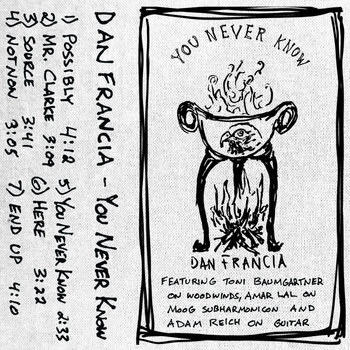 DAN FRANCIA - YOU NEVER KNOW
1) POSSIBLY 4:12
2) MR. CLARKE 3:09
3) SOURCE 3:41
4) NOT NON 3:05
5) YOU NEVER KNOW 2:33
6) HERE 3:22
7) END UP 4:10
YOU NEVER KNOW
DAN FRANCIA
FEATURING TONI BAUMGARTNER
ON WOODWINDS, AMAR LAL ON
MOOG SUBHARMONICON AND
ADAM REICH ON GUITAR